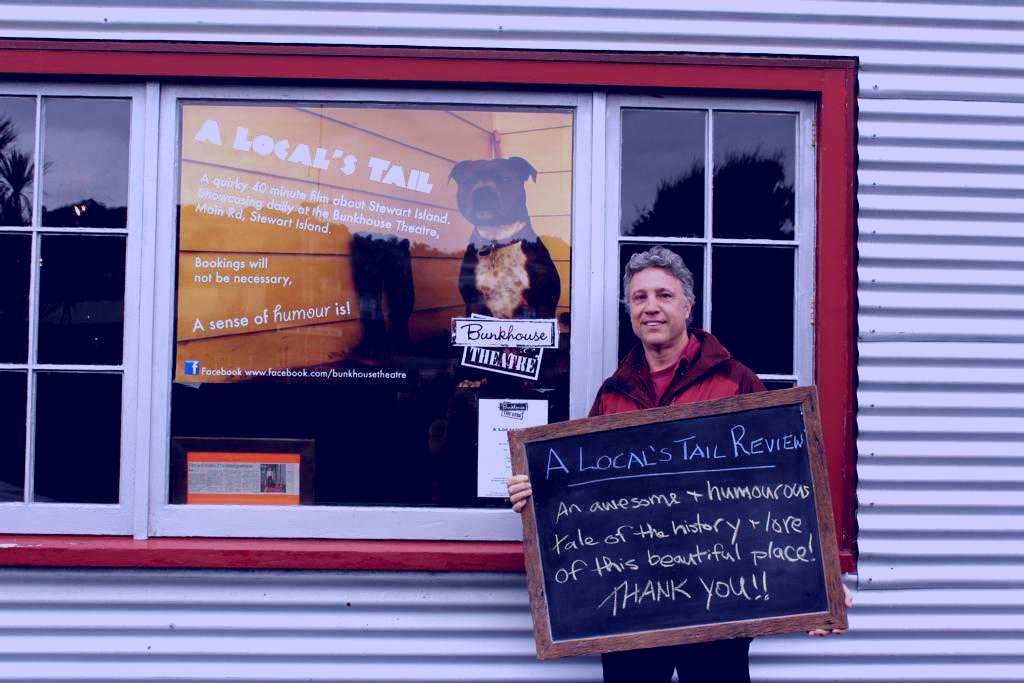 A LOCAL'S TAIL
A quirky 40 minute film about Stewart Island.
Showcasing daily at the Bunkhouse Theatre,
Main Rd, Stewart Island.
Bookings will
not be necessary,
A sense of humour is!
Bunkhouse
THEATRE
f Facebook www.facebook.com/bunkhousetheatre
Bunkhouse
THEATRE
A LOCAL'S TAIL REVIEW
An awesome + humourous
tale of the history + lore
of this beautiful place!
THANK YOU!!